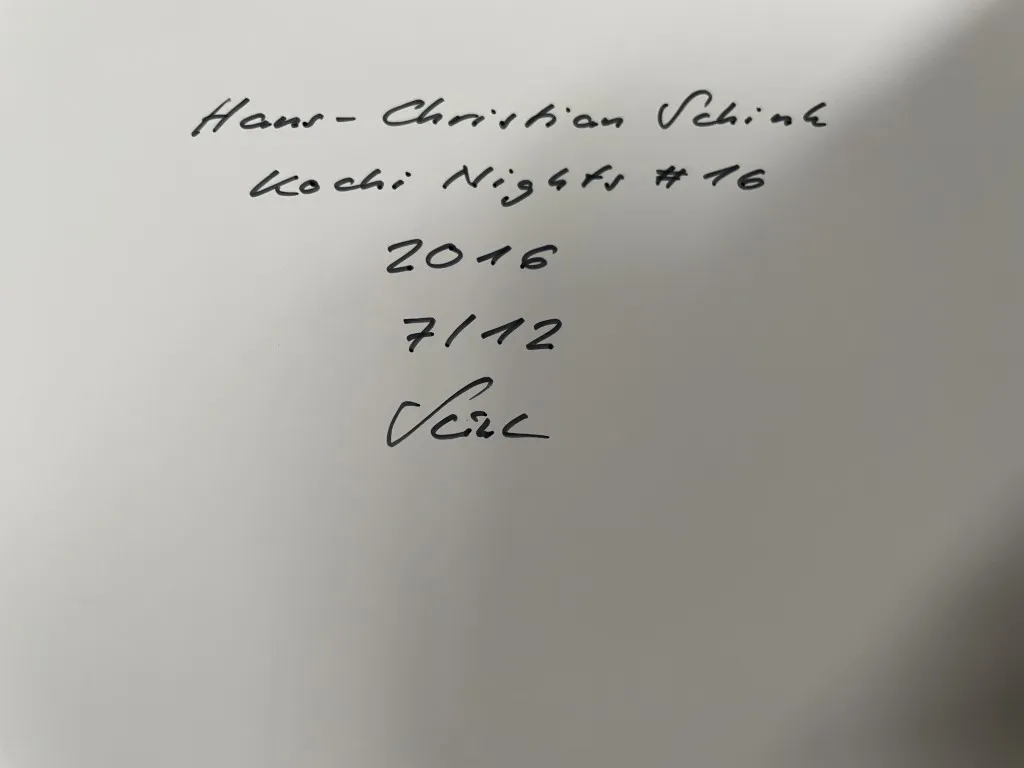 Hans-Christian Schink
Kochi Nights # 16
2016
7/12
Schink